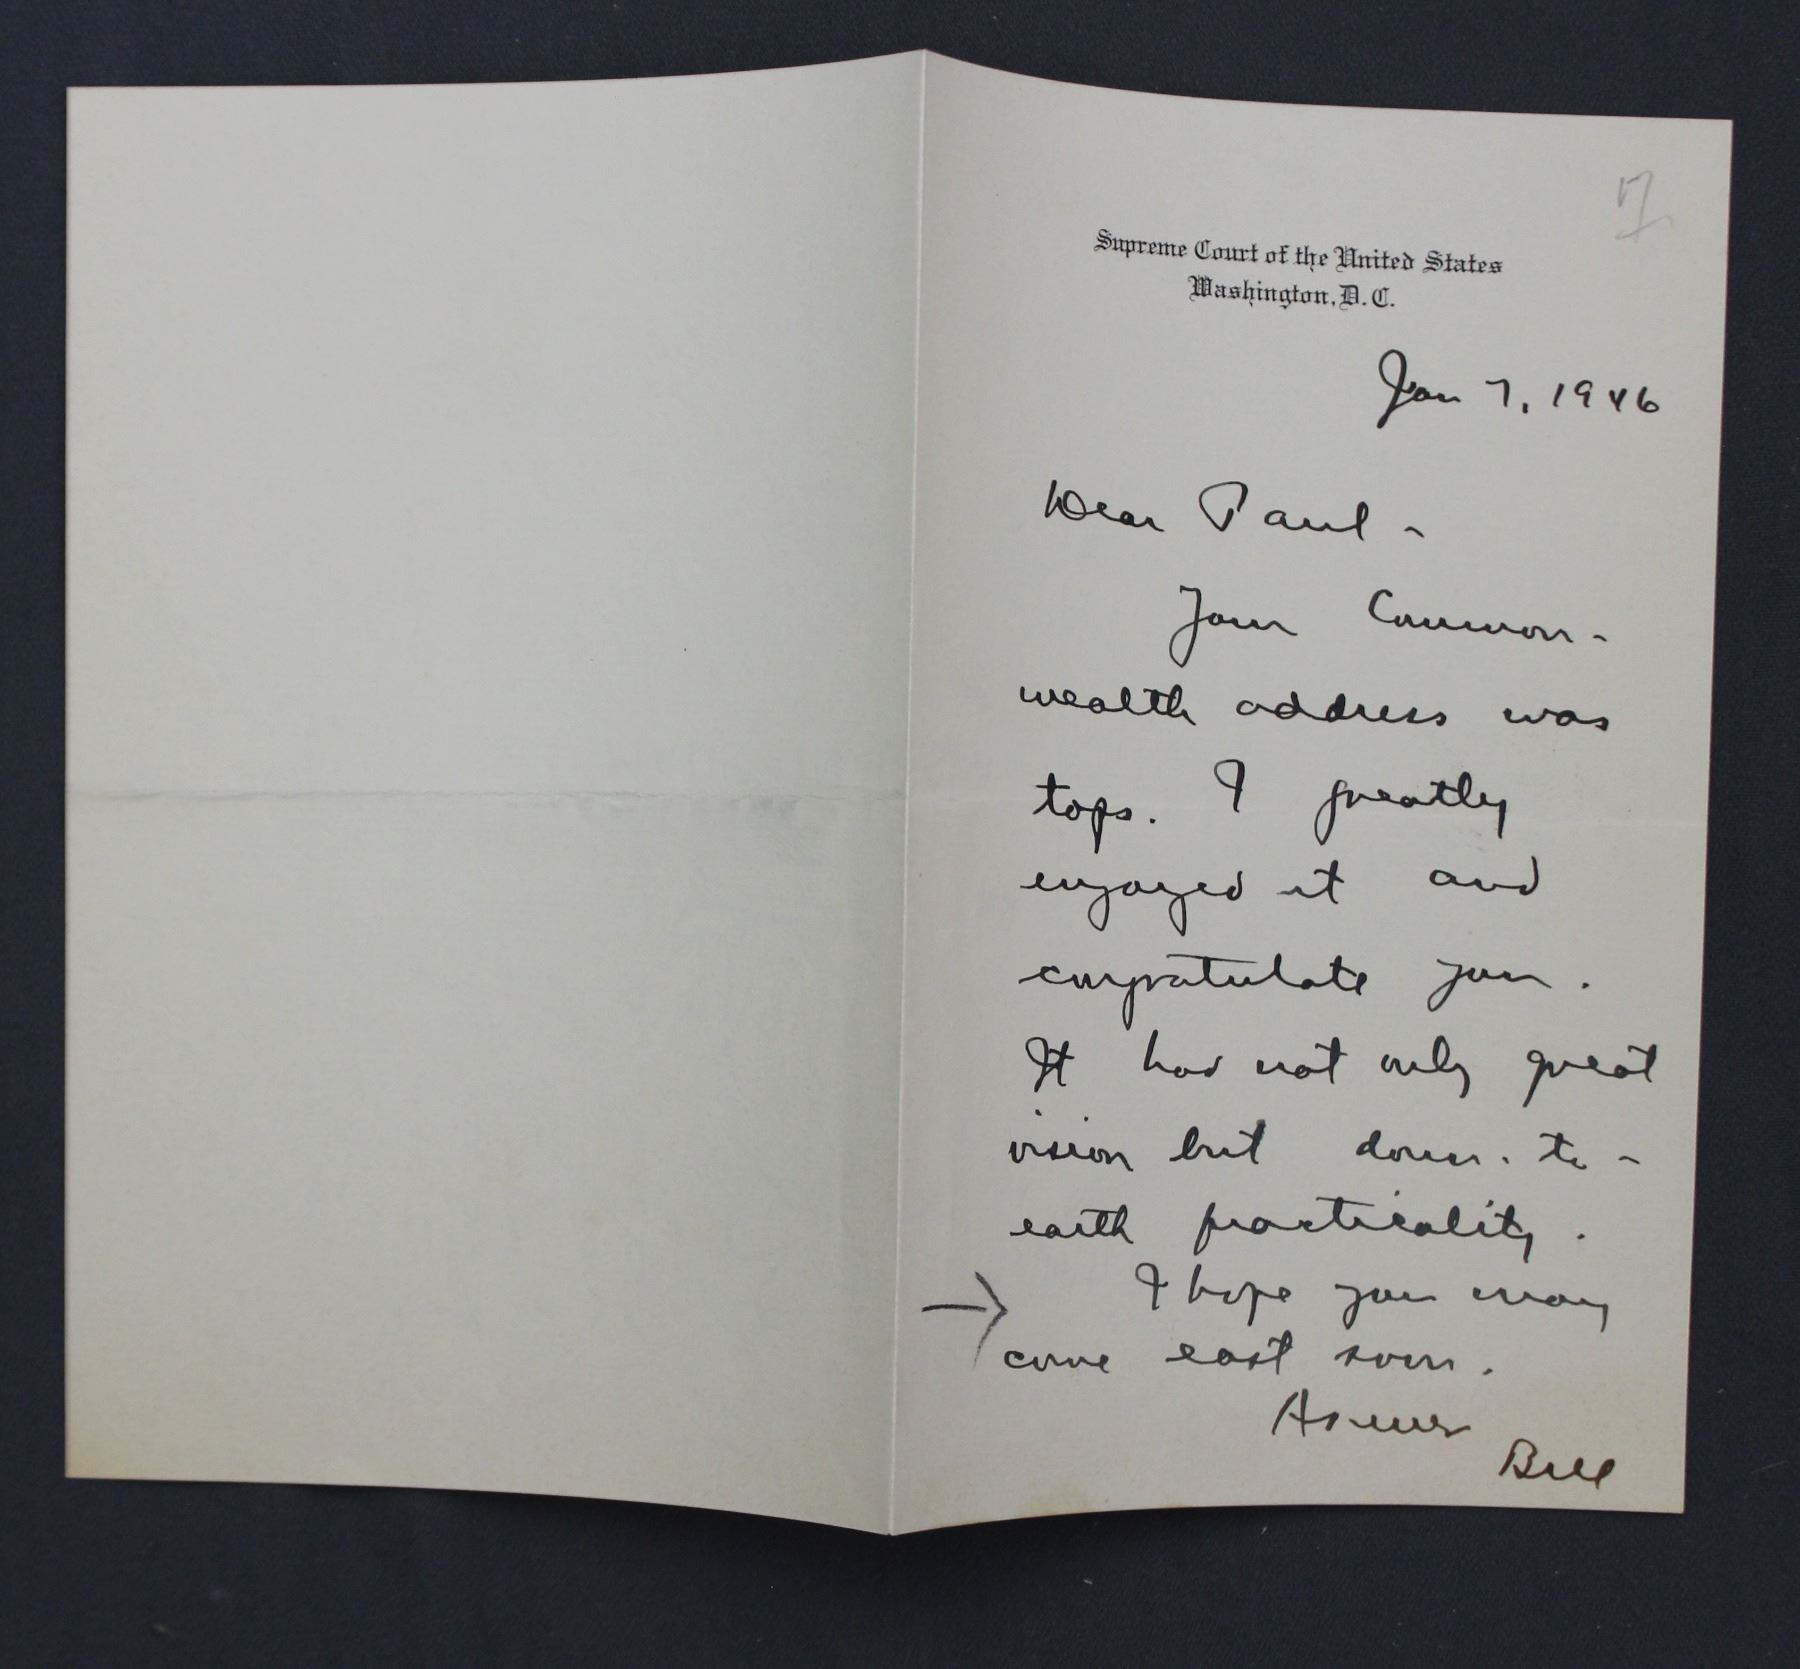 Supreme Court of the United States
Washington, D. C.
Jan 7, 1946
Dear Paul -
Your Common-
wealth address was
tops. I greatly
enjoyed it and
congratulate you.
It had not only great
vision but down-to-
earth practicality.
I hope you may
come east soon.
Bill